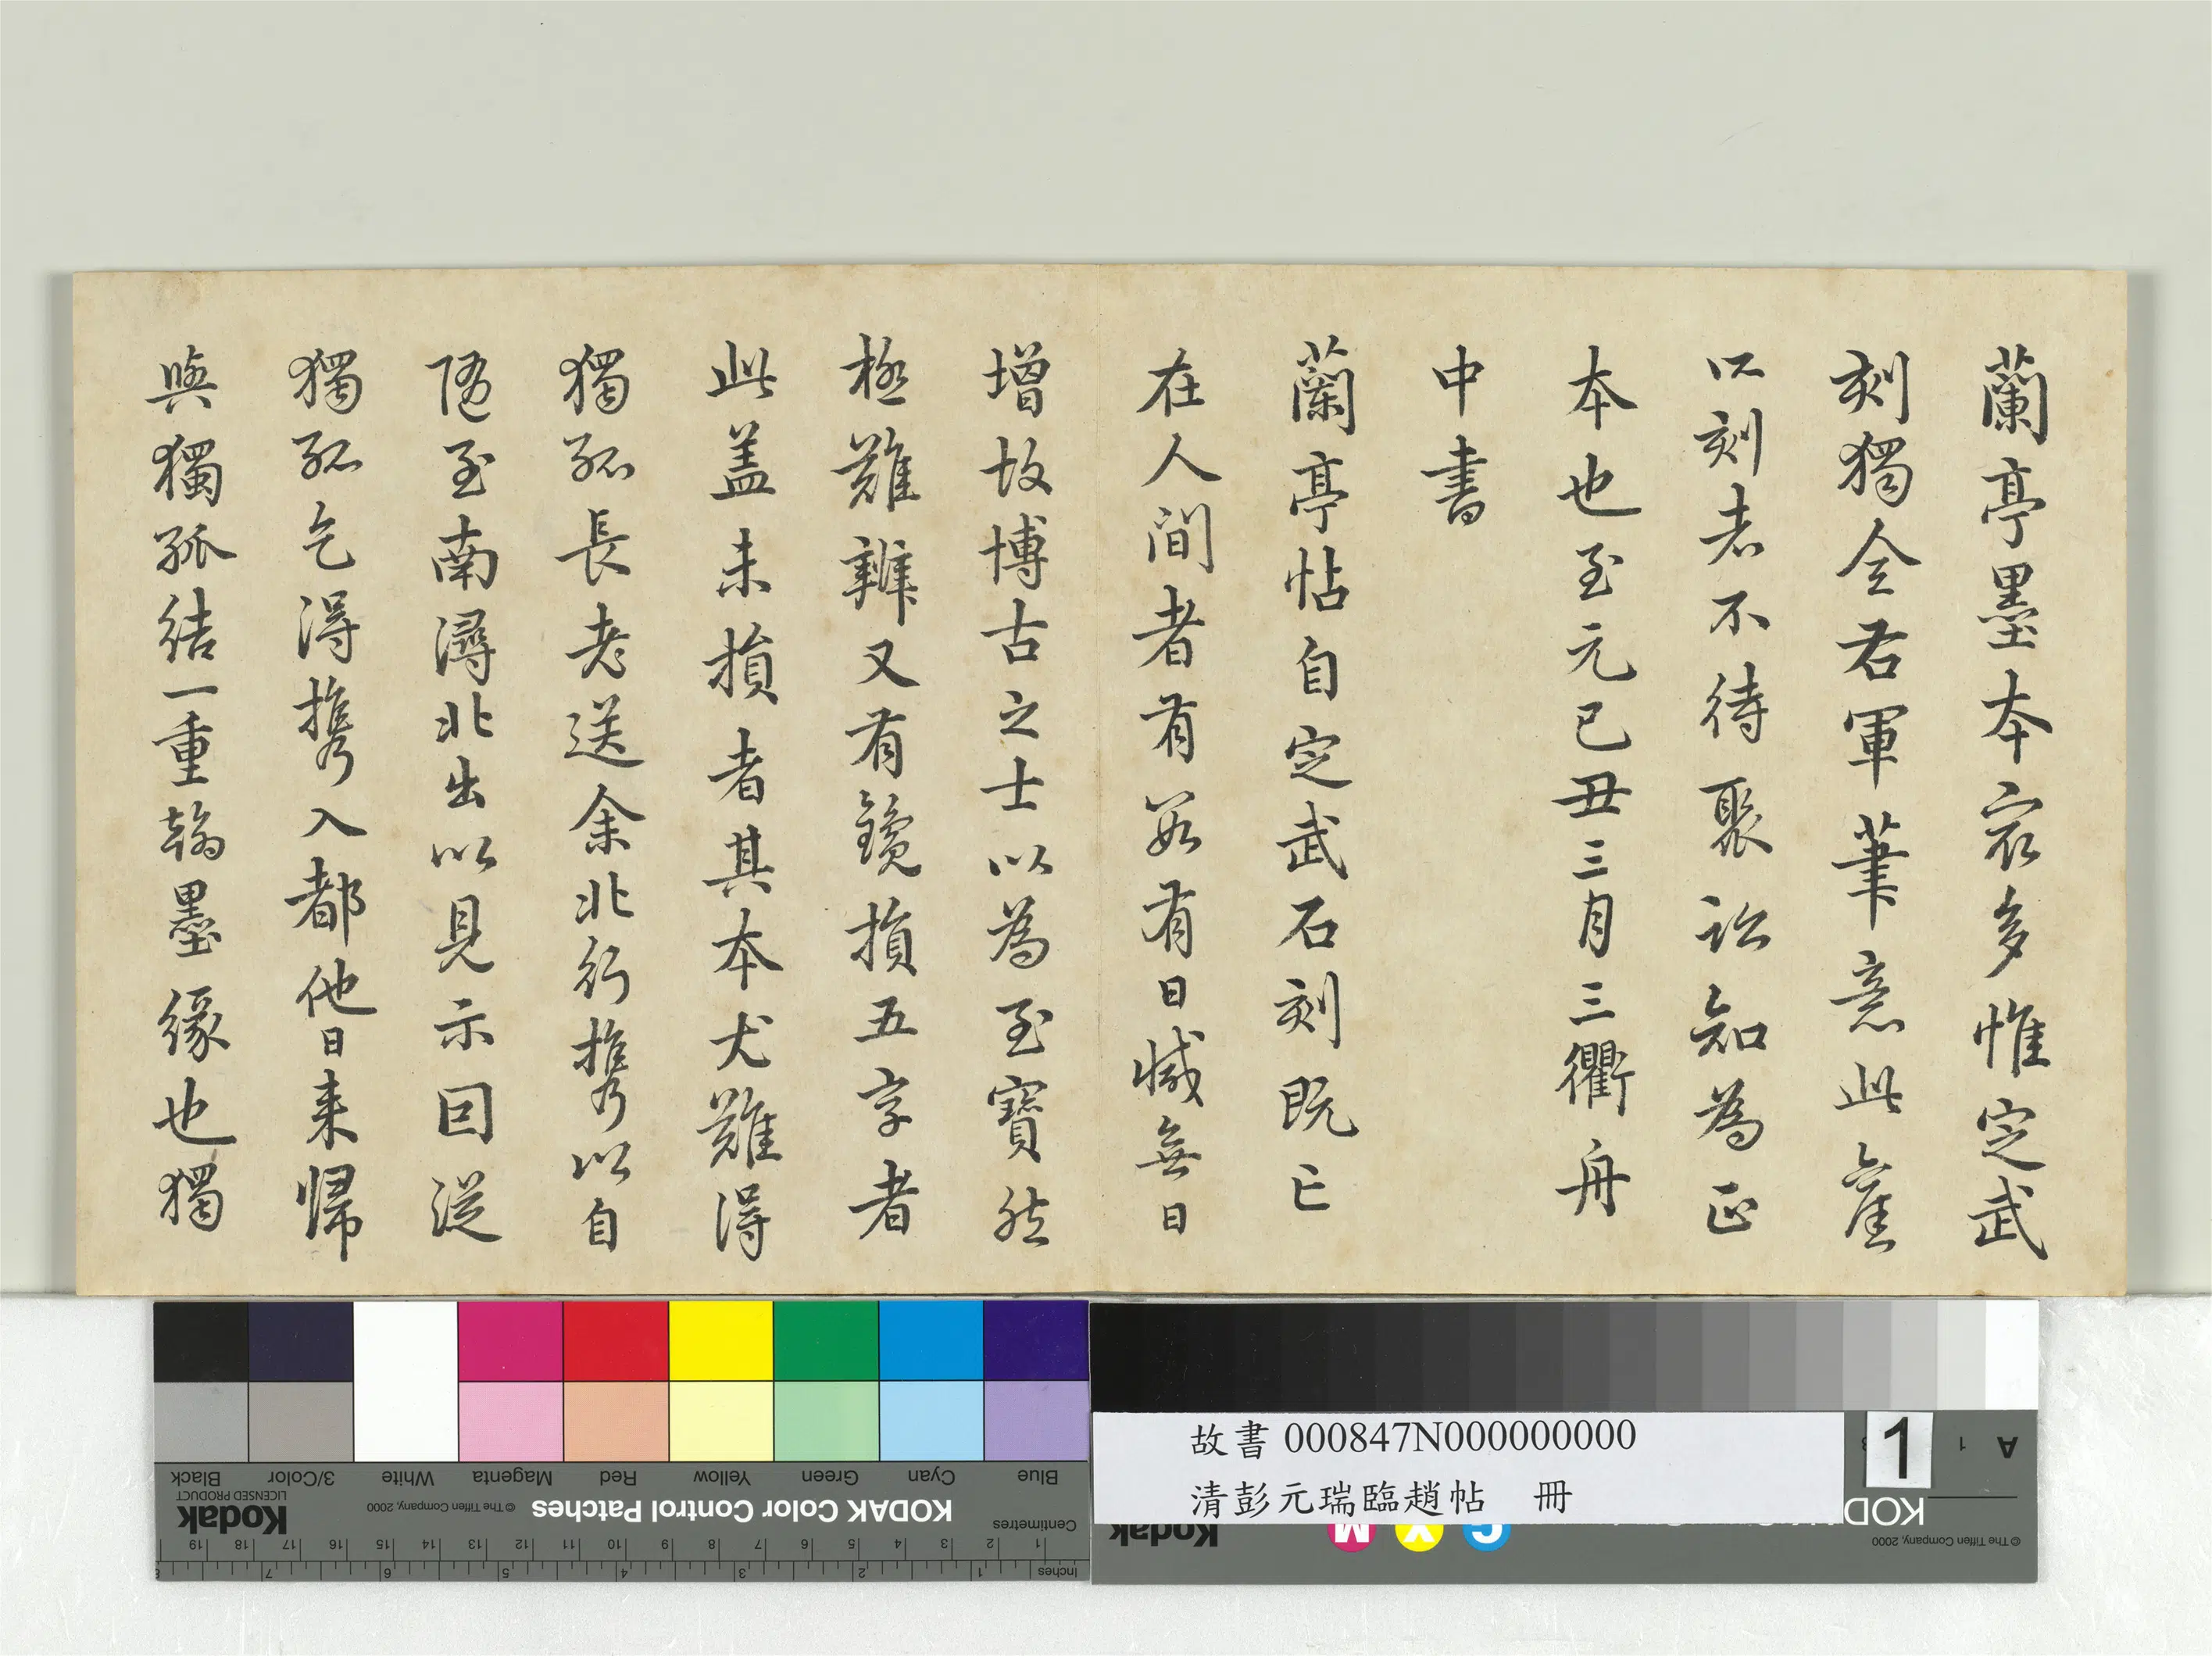 蘭亭墨本㝡多惟定武
刻獨全右軍筆意此舊
所刻者不待聚訟知為正
本也至元己丑三月三衢舟
中書
蘭亭帖自定武石刻既亡
在人間者有數有日減無日
增故博古之士以為至寶然
極難辨又有鑱損五字者
此盖未損者其本尤難得
獨孤長老送余北行携以自
隨至南潯北出以見示因從
獨孤乞得携入都他日来歸
與獨孤結一重翰墨緣也獨
故書 000847N000000000
清彭元瑞臨趙帖 冊
1
A 1
KOD
Kodak
C Y M
© The Tiffen Company, 2000
Blue Cyan Green Yellow Red Magenta White 3/Color Black
KODAK Color Control Patches
© The Tiffen Company, 2000
Kodak
LICENSED PRODUCT
Centimetres
1 2 3 4 5 6 7 8 9 10 11 12 13 14 15 16 17 18 19
Inches
1 2 3 4 5 6 7 8